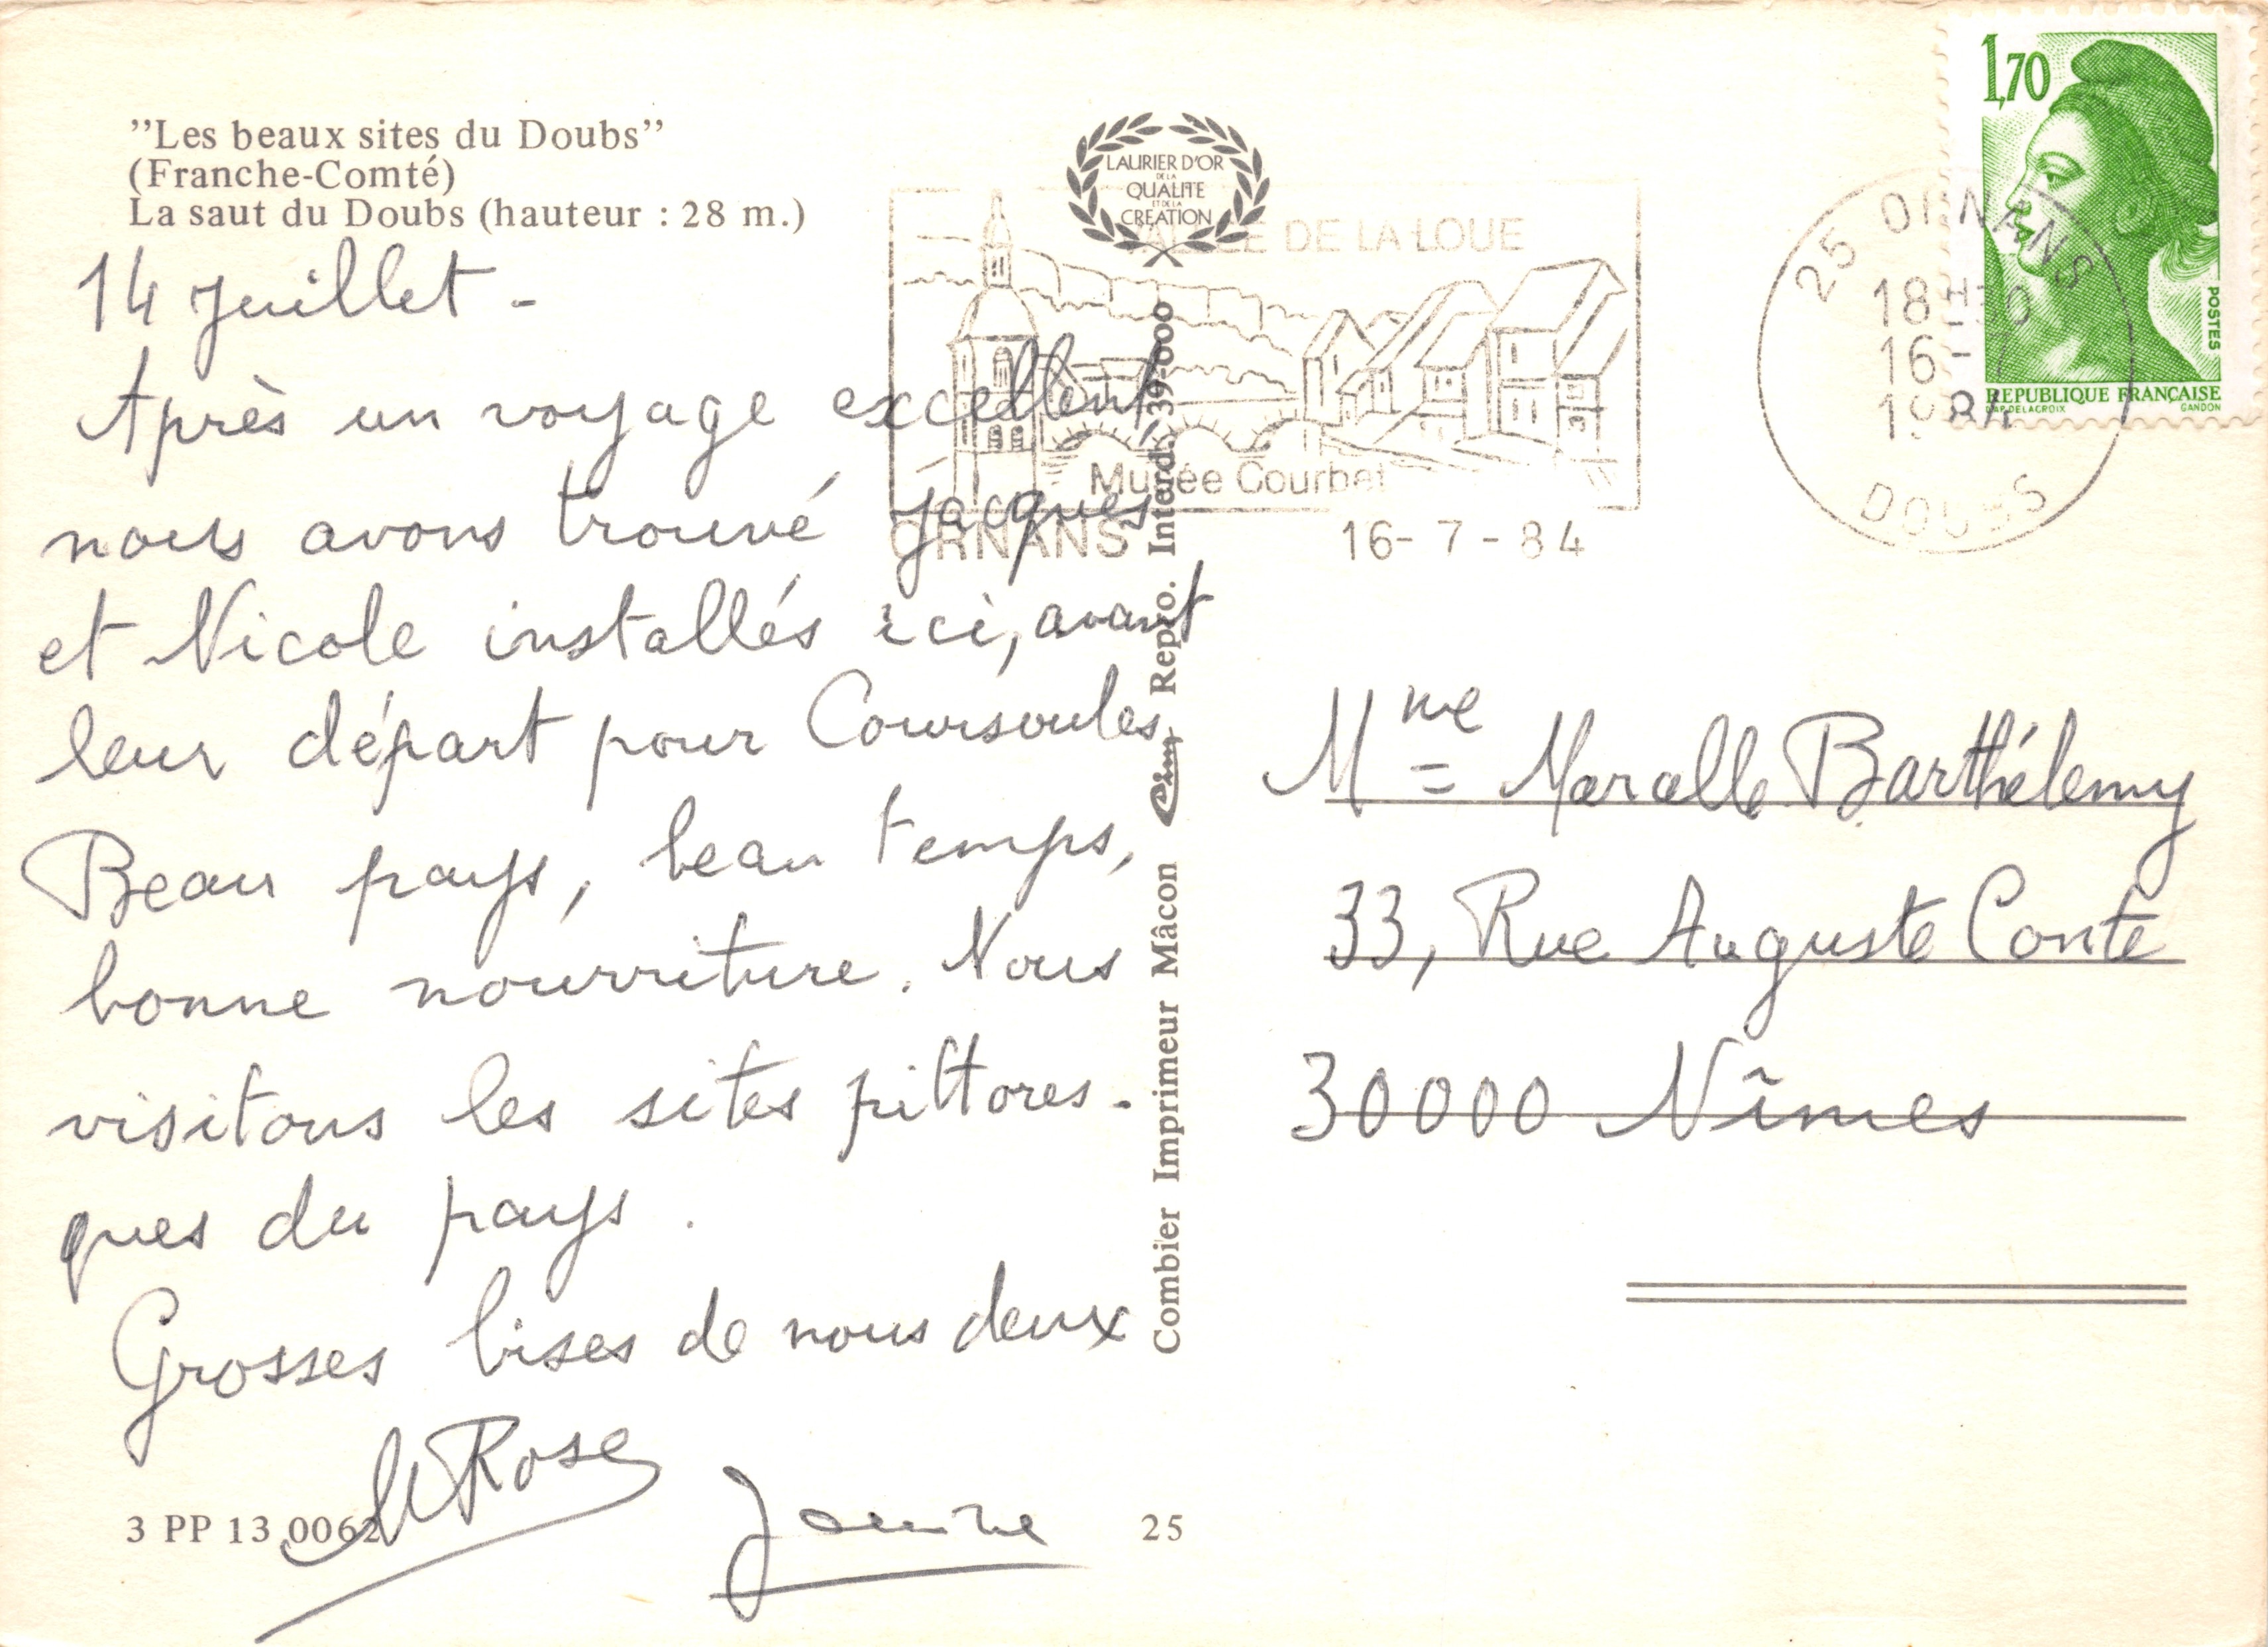 "Les beaux sites du Doubs"
(Franche-Comté)
La saut du Doubs (hauteur : 28 m.)
14 Juillet -
Après un voyage excellent
nous avons trouvé Jacques
et Nicole installés ici, avant
leur départ pour Coursoules
Beau pays, beau temps,
bonne nourriture. Nous
visitons les sites pittores-
ques du pays.
Grosses bises de nous deux
M Rose
3 PP 13 0062
25
Combier Imprimeur Mâcon Cim Repro. Interd. 39-000
LAURIER D'OR
DE LA
QUALITE
ET DE LA
CREATION
VALLEE DE LA LOUE
Musée Courbet
ORNANS
16-7-84
25 ORNANS
18H30
16-7
1984
DOUBS
1,70
POSTES
REPUBLIQUE FRANÇAISE
D'AP. DELACROIX
GANDON
Mme Marcelle Barthélemy
33, Rue Auguste Conte
30000 Nîmes